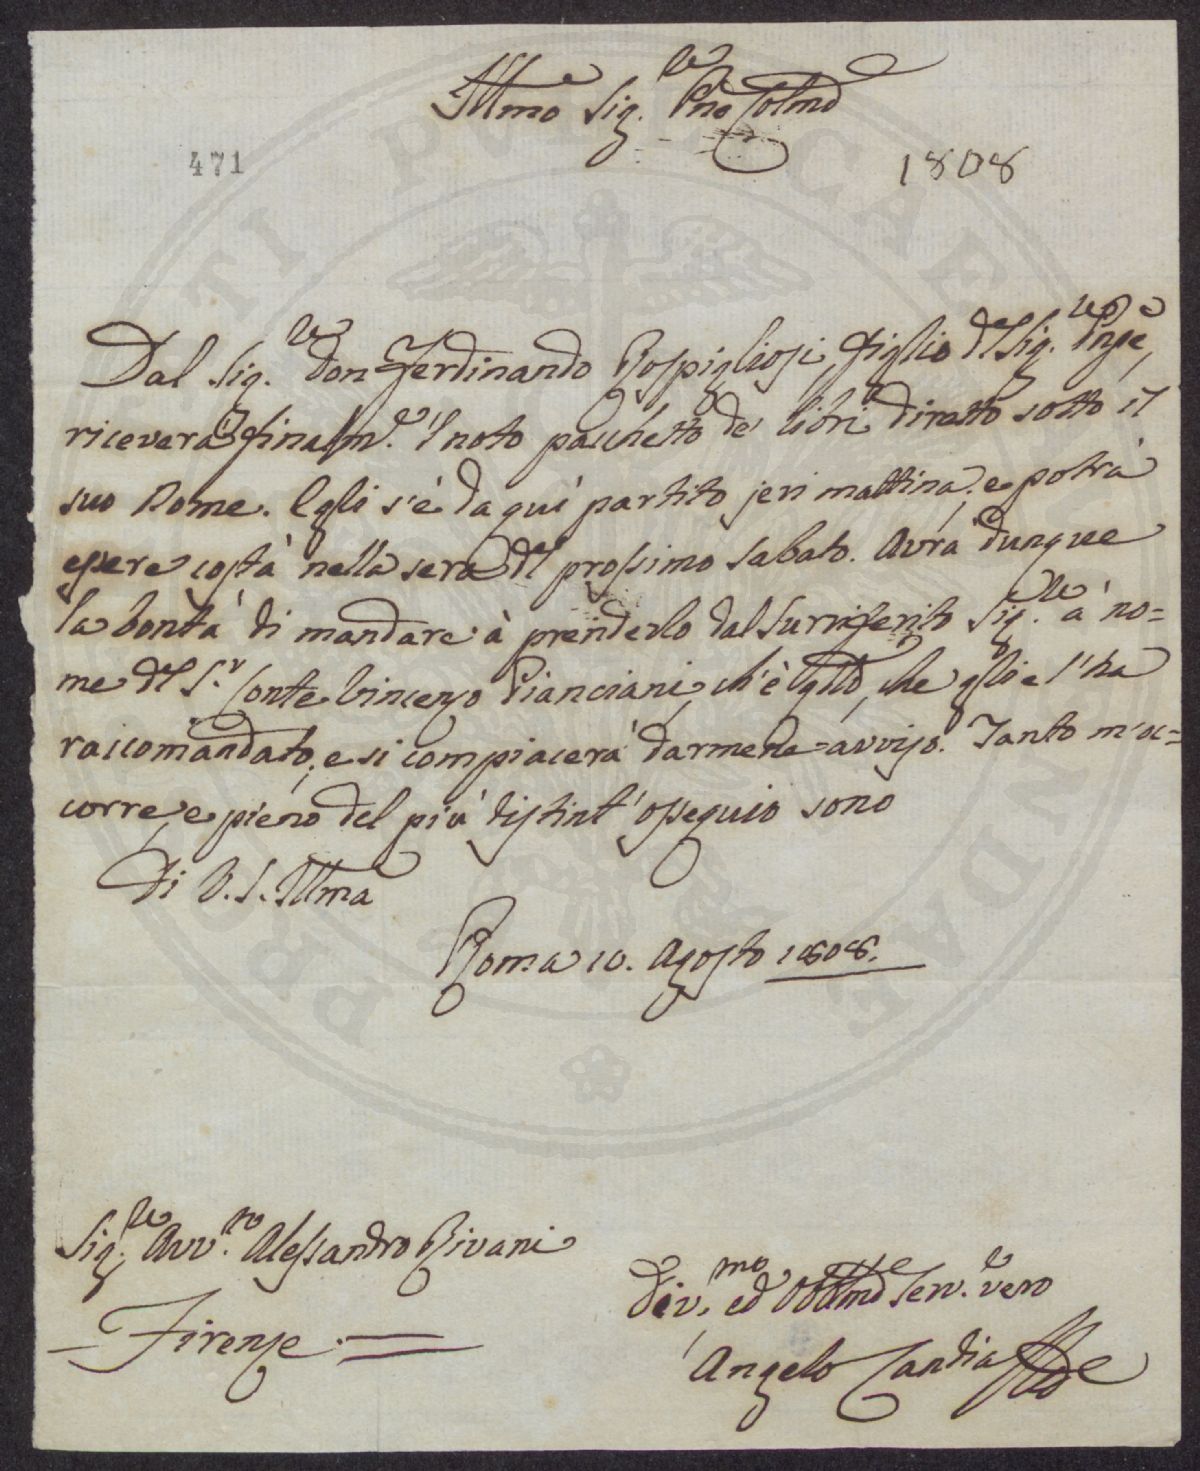 Illmo Sig.re Pne Colmo
471
1808
Dal Sig.re Don Ferdinando Rospigliosi, figlio del Sig.re Pnpe,
riceverà finalm.e 'l noto pacchetto de' libri diretto sotto il
suo nome. Egli s'è da quì partito jeri mattina, e potrà
essere costà nella sera del prossimo sabato. Avrà dunque
la bontà di mandare à prenderlo dal surriferito Sig.re à no=
me del S.r Conte Vincenzo Pianciani, ch'è quello, che glie l'ha
raccomandato, e si compiacerà darmene avviso. Tanto m'oc=
corre, e pieno del più distint'ossequio sono
Di V. S. Illma
Roma 10. Agosto 1808.
Sig.re Avv.to Alessandro Rivani
Firenze
Div.mo ed Obblmo Serv.e vero
Angelo Candia